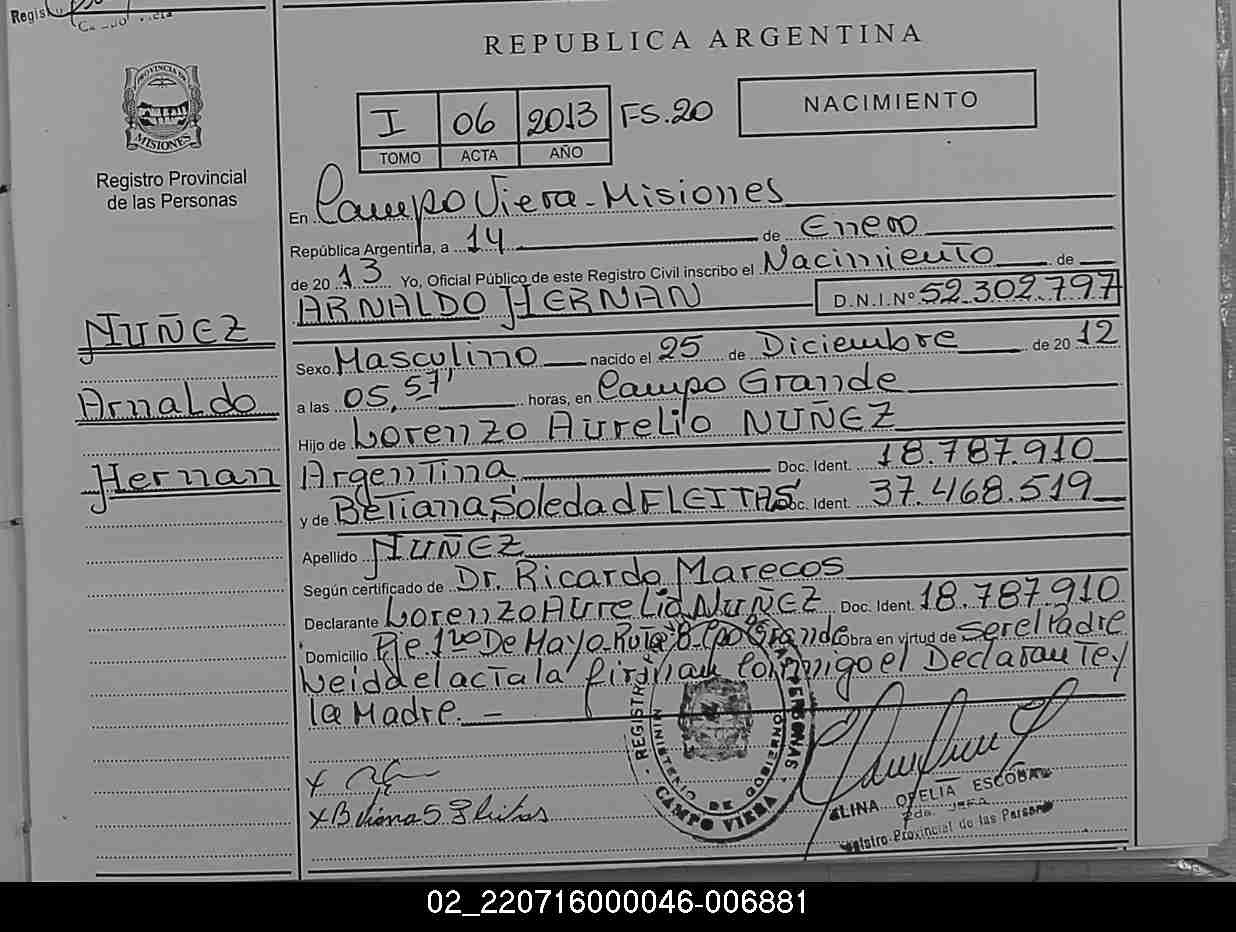 REPUBLICA ARGENTINA
PROVINCIA DE
MISIONES
Registro Provincial
de las Personas
I 06 2013 FS.20
TOMO ACTA AÑO
NACIMIENTO
En Campo Viera - Misiones
República Argentina, a 14 de Enero
de 2013 Yo, Oficial Público de este Registro Civil inscribo el Nacimiento de
ARNALDO HERNAN D.N.I.Nº 52.302.797
NUÑEZ
Arnaldo
Hernan
Sexo Masculino nacido el 25 de Diciembre de 2012
a las 05,57' horas, en Campo Grande
Hijo de Lorenzo Aurelio NUÑEZ
Argentina Doc. Ident. 18.787.910
y de Betiana Soledad FLEITAS Doc. Ident. 37.468.519
Apellido NUÑEZ
Según certificado de Dr. Ricardo Marecos
Declarante Lorenzo Aurelio NUÑEZ Doc. Ident. 18.787.910
Domicilio Pje. 1ro De Mayo-Ruta 8-Cpo Grande Obra en virtud de ser el Padre
Leida el acta la firman Conmigo el Declarante y
la Madre. -
REGISTRO DE LAS PERSONAS
MINISTERIO DE GOBIERNO
CAMPO VIERA
LINA OFELIA ESCOBAR
2da. JEFA
Registro Provincial de las Personas
02_220716000046-006881